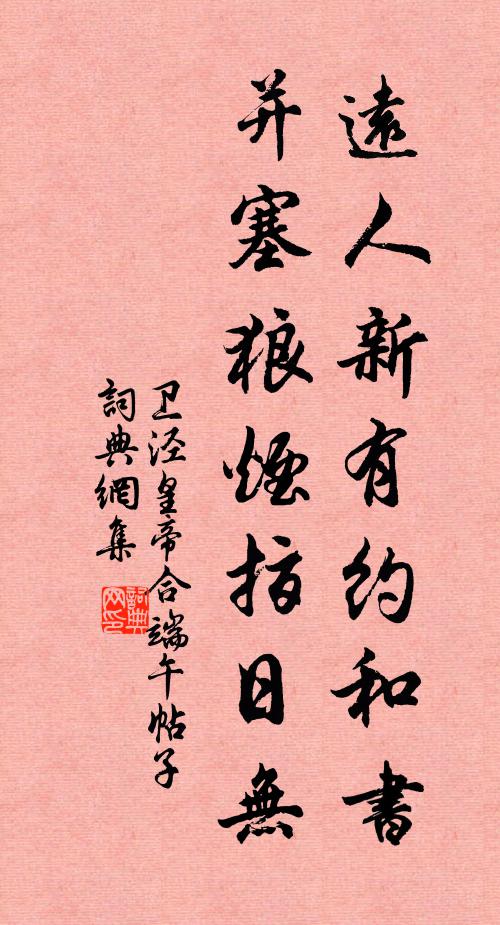 遠人新有約和書
并塞狼煙指日無
卫泾皇帝合端午帖子
詞典網集
詞典网印